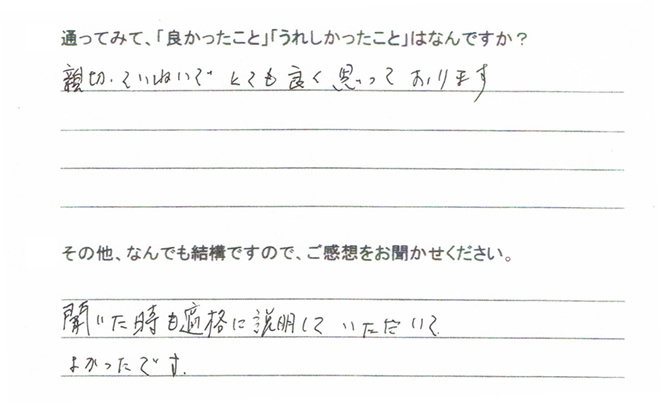 通ってみて、「良かったこと」「うれしかったこと」はなんですか？
親切、ていねいで とても良く思っております
その他、なんでも結構ですので、ご感想をお聞かせください。
聞いた時も適格に説明して いただいて
よかったです.